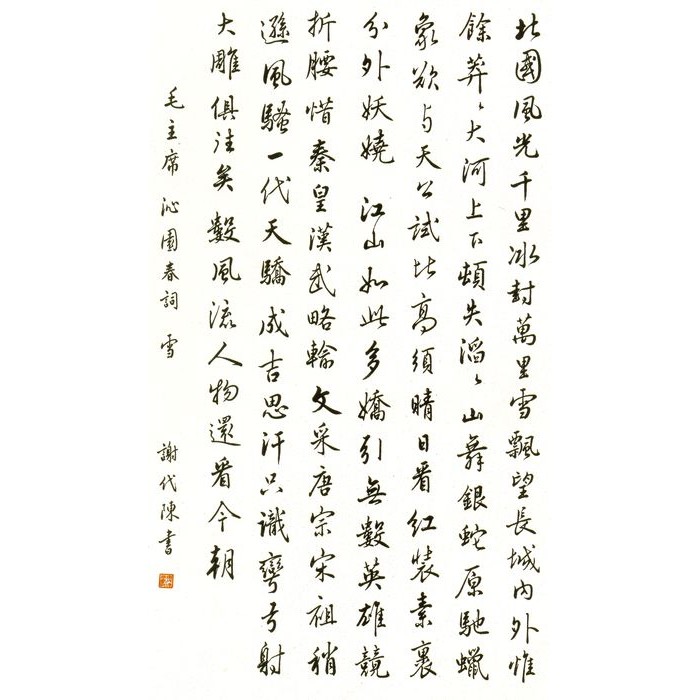 北國風光千里冰封萬里雪飄望長城內外惟
餘莽〻大河上下頓失滔〻山舞銀蛇原馳蠟
象欲与天公試比高須晴日看紅裝素裹
分外妖嬈 江山如此多嬌引無數英雄競
折腰惜秦皇漢武略輸文采唐宗宋祖稍
遜風騷一代天驕成吉思汗只識彎弓射
大雕俱往矣數風流人物還看今朝
毛主席沁園春詞 雪 謝代陳書